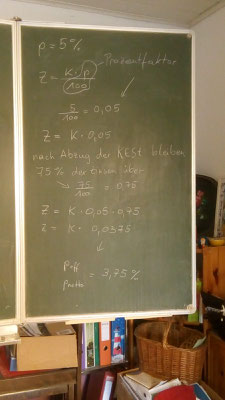 p = 5%
Z = K · p / 100
Prozentfaktor
5/100 = 0,05
Z = K · 0,05
nach Abzug der KESt bleiben
75% der Zinsen über
75/100 = 0,75
Z = K · 0,05 · 0,75
Z = K · 0,0375
p eff
p netto
= 3,75 %